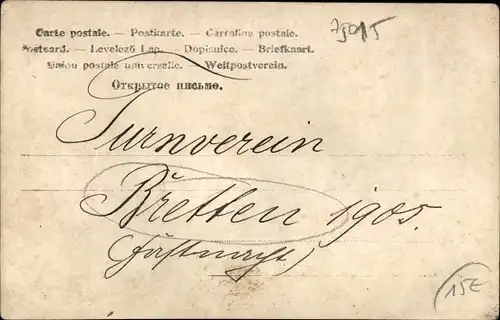 75015
Carte postale. — Postkarte. — Cartolina postale.
Postcard. — Levelező Lap. — Dopisnice. — Briefkaart.
Union postale universelle. — Weltpostverein.
Открытое письмо.
Turnverein
Bretten 1905.
(Fastnacht)
15E